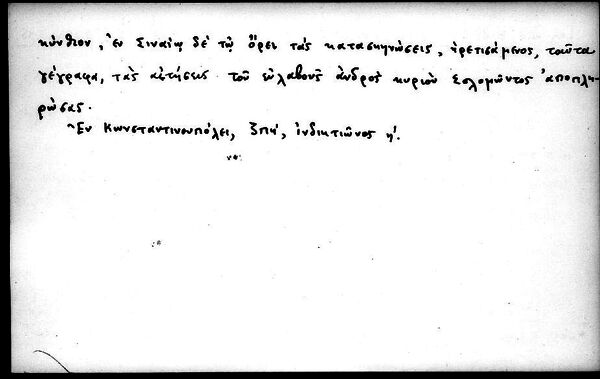 κύνθιον, ἐν Σιναίῳ δὲ τῷ ὄρει τὰς κατασκηνώσεις, ᾑρετισάμενος, ταῦτα
γέγραφα, τὰς αἰτήσεις τοῦ εὐλαβοῦς ἀνδρὸς κυρίου Σολομῶντος ἀποπλη-
ρώσας.
Ἐν Κωνσταντινουπόλει, ζπη', ἰνδικτιῶνος η'.